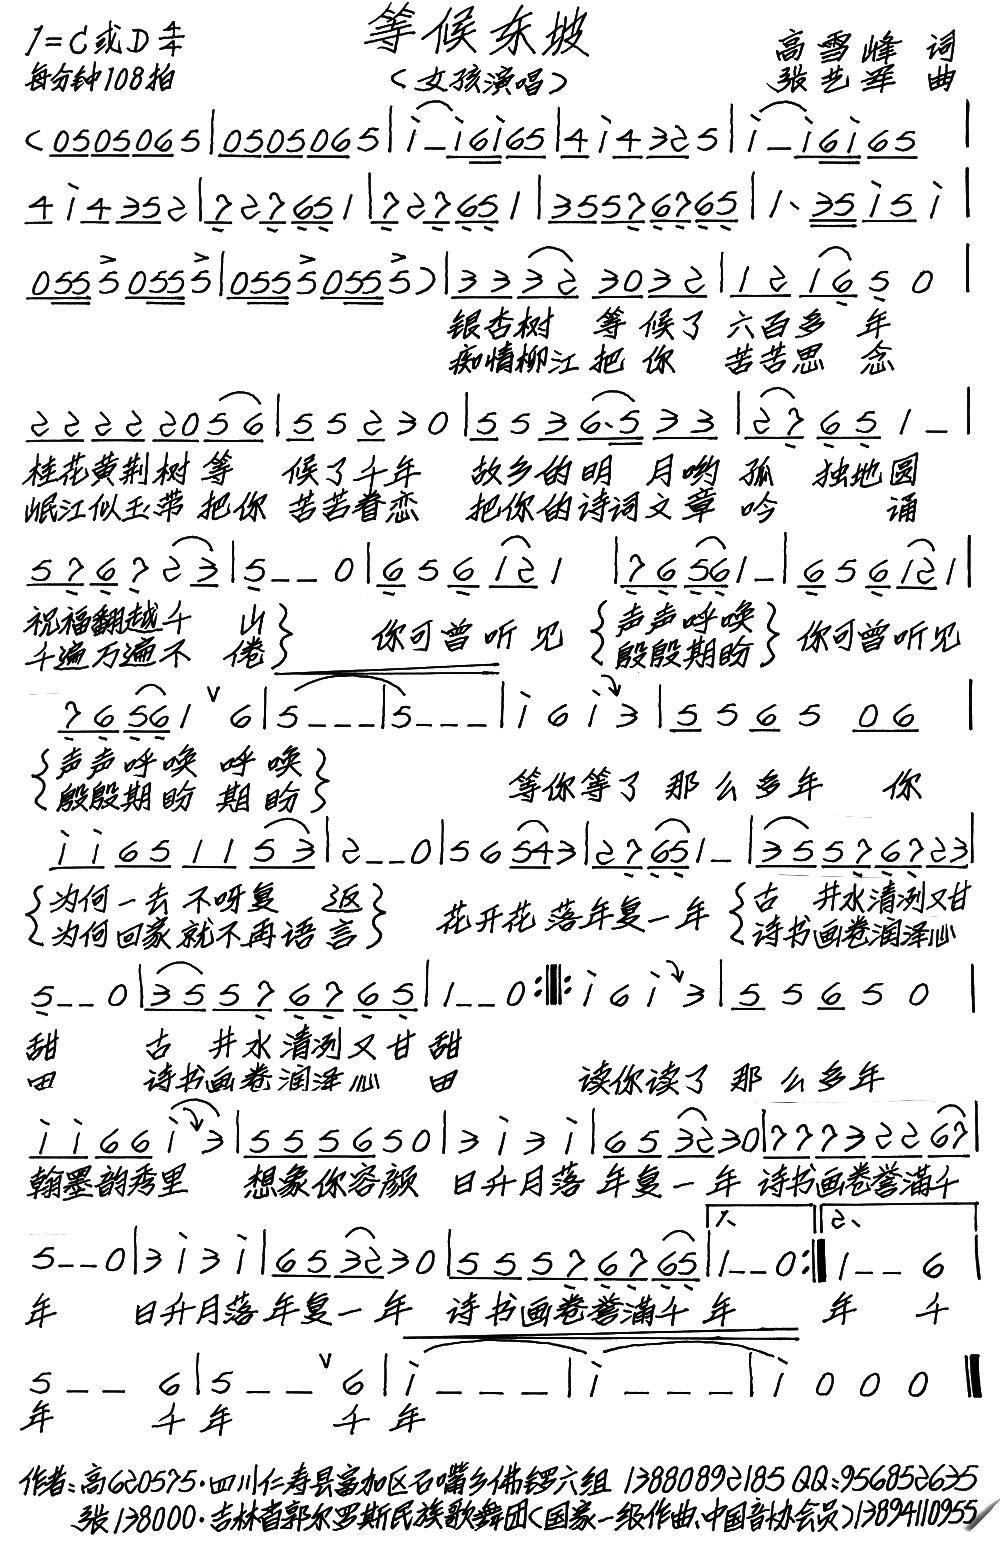 等候东坡
1=C或D 4/4
高雪峰 词
每分钟108拍
(女孩演唱)
张艺军 曲
(0505065|0505065|i－i6i65|4i4325|i－i6i65|
4i4352|727651|727651|35576765|1、35i5i|
0555 0555|0555 0555)|3332 3032|1216 5 0|
银杏树 等候了 六百多 年
痴情柳江 把你 苦苦思 念
22222056|55230|5536·533|27 6 5 1－|
桂花黄荆树等 候了千年 故乡的明 月哟孤 独地圆
岷江似玉带 把你 苦苦眷恋 把你的诗词文章 吟 诵
576723|5－－0|656121|76561－|656121|
祝福翻越千 山 你可曾听见 声声呼唤 你可曾听见
千遍万遍不 倦 殷殷期盼
76561 6|5－－－|5－－－|i6i3|5565 06|
声声呼唤 呼唤
殷殷期盼 期盼 等你等了 那么多年 你
ii651153|2－－0|56543|27651－|35576723|
为何一去 不呀复 返 花开花 落年复一年 古 井水清洌又甘
为何回家就不再语言 诗书画卷润泽心
5－－0|35576765|1－－0:‖:i6i3|55650|
甜 古 井水清洌又甘 甜
田 诗书画卷润泽心 田 读你读了 那么多年
ii66i3|555650|3i3i|653230|777322 67|
翰墨韵秀里 想象你容颜 日升月落 年复一年 诗书画卷誉满千
1、 2、
5－－0|3i3i|653230|55576765|1－－0:‖1－－6|
年 日升月落 年复一年 诗书画卷誉满千 年 年 千
5－－6|5－－－6|i－－－|i－－－|i000‖
年 千年 千年
作者:高620575·四川仁寿县富加区石嘴乡佛锣六组 13880892185 QQ:956852635
张138000·吉林省郭尔罗斯民族歌舞团(国家一级作曲、中国音协会员)13894110955